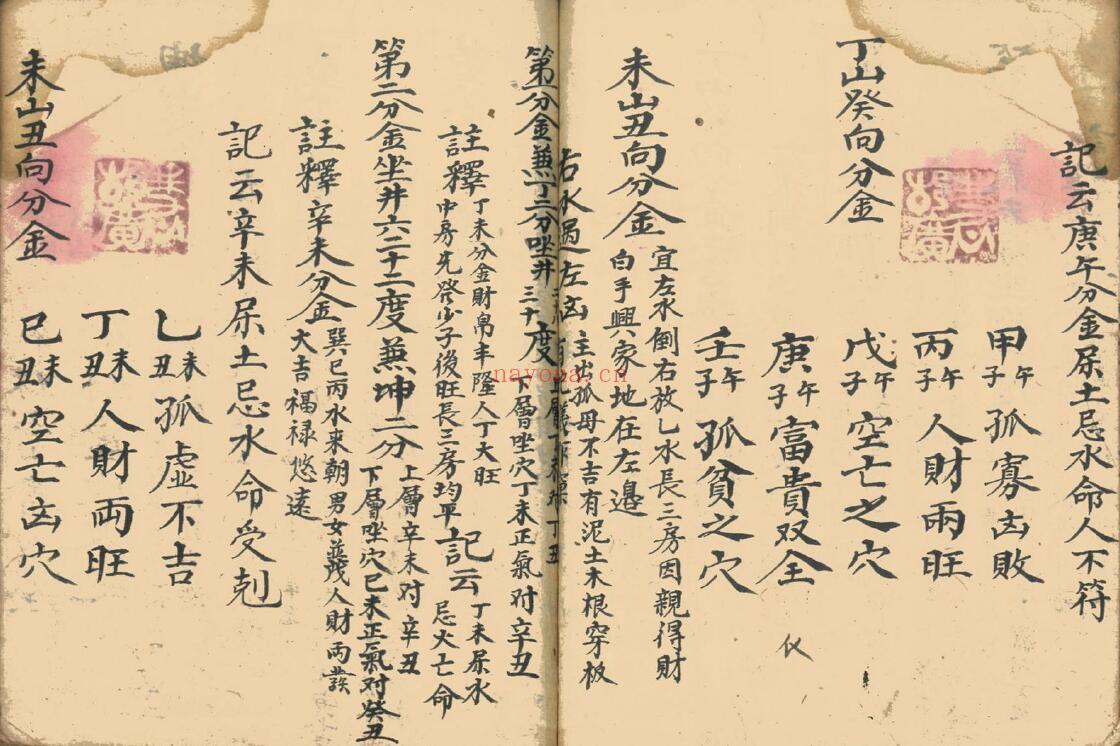 記云庚午分金屎土忌水命人不符
丁山癸向分金
甲午甲子孤寡凶敗
丙午丙子人財兩旺
戊午戊子空亡之穴
庚午庚子富貴双全
壬午壬子孤貧之穴
仪
未山丑向分金
宜左水倒右放乙水長三房因親得財
白手興家地在左邊
右水過左凶主出孤母不吉有泥土木根穿板
第一分金兼丁二分坐井三十度
下層坐穴丁未正氣对辛丑
註釋
丁未分金財帛丰隆人丁大旺
中房先發少子後旺長三房均平
記云
丁未屎水
忌火亡命
第二分金坐井六二十二度兼坤二分
上層辛未对辛丑
下層坐穴已未正氣对癸丑
註釋辛未分金
巽巳丙水來朝男女茂人財兩發
大吉福禄悠遠
記云辛未屎土忌水命受剋
乙未丑孤虛不吉
丁未丑人財両旺
已未丑空亡凶穴
未山丑向分金
nayona.cn